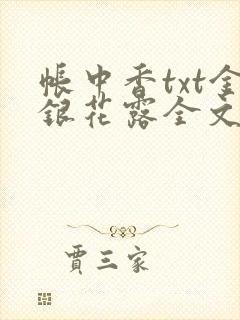 帳中香txt金
銀花露全文
賈三家